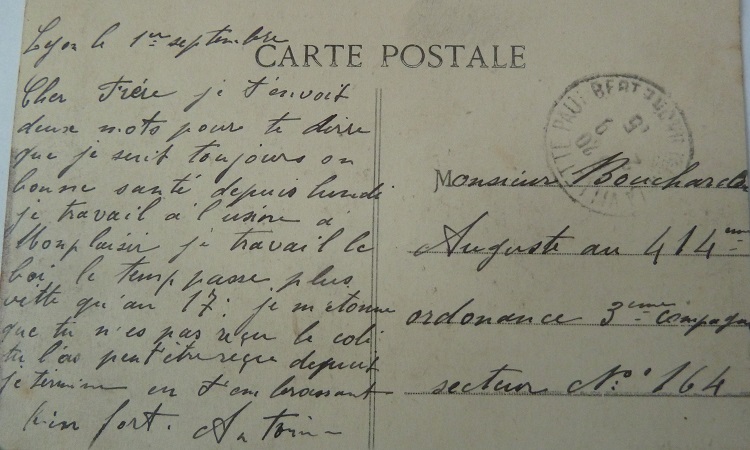 Lyon le 1er septembre
CARTE POSTALE
Cher Frére je t'envoit
deux mots pour te dirre
que je serit toujours on
bonne santé depuis lundi
je travail a l'usine a
Monplaisir je travail le
boi le temp passe plus
vitte qu'au 17: je m'etonne
que tu n'es pas reçu le coli
tu l'as peut être reçue depuit
je termine en t'embrassant
bien fort. Antoine
Monsieur Bouchardon
Auguste au 414eme
ordonance 3eme compagnie
secteur No: 164
PAUL BERT